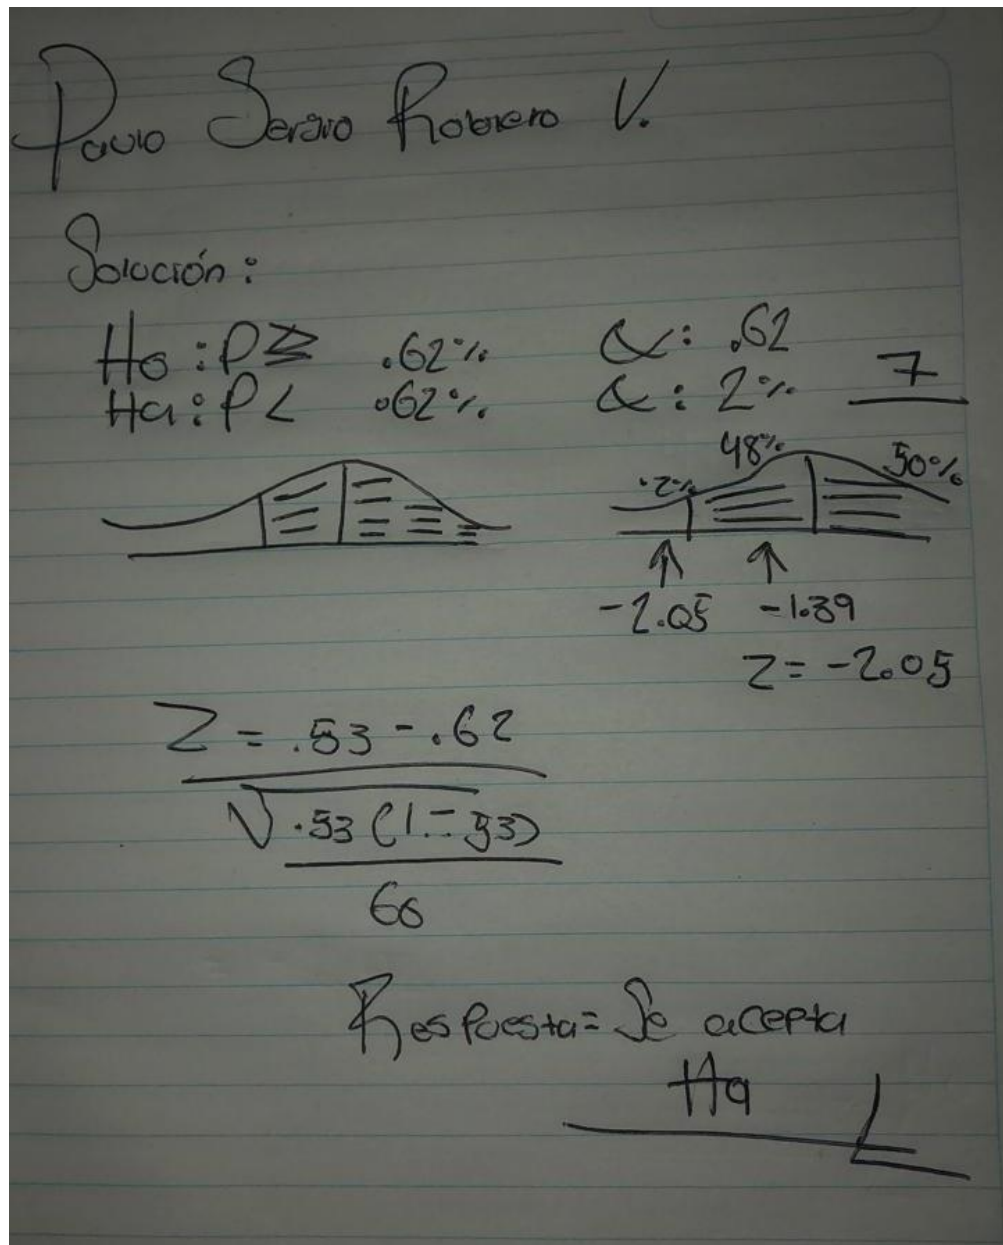 Paulo Sergio Robrero V.
Solución:
Ho: P≥ .62% α: .62
Ha: P< .62% α: 2% 7
.2% 48% 50%
-2.05 -1.39
Z= -2.05
Z = .53 - .62
√.53 (1-53)
60
Respuesta= Se acepta
Ha